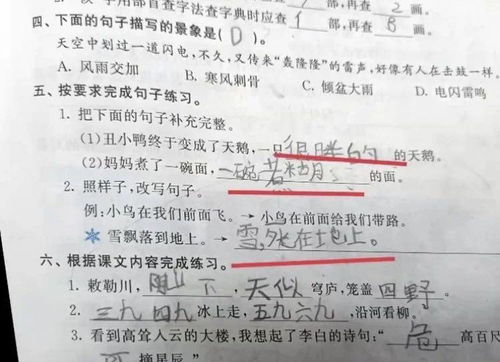 用部首查字法查字典时应查 部,再查 2 画。
部,再查 8 画。
四、下面的句子描写的景象是( D )。
天空中划过一道闪电,不久,又传来“轰隆隆”的雷声,好像有人在击鼓一样。
A. 风雨交加 B. 寒风刺骨 C. 倾盆大雨 D. 电闪雷鸣
五、按要求完成句子练习。
1. 把下面的句子补充完整。
(1)丑小鸭终于变成了天鹅,一只很胖的的天鹅。
(2)妈妈煮了一碗面,一碗 的面。
2. 照样子,改写句子。
例:小鸟在我们前面飞。→ 小鸟在前面给我们带路。
雪飘落到地上。→ 雪,死在地上。
六、根据课文内容完成练习。
1. 敕勒川,阴山下,天似穹庐,笼盖四野。
2. 三九四九冰上走,五九六九,沿河看柳。
3. 看到高耸入云的大楼,我想起了李白的诗句:“危 高百尺
摘星辰。”